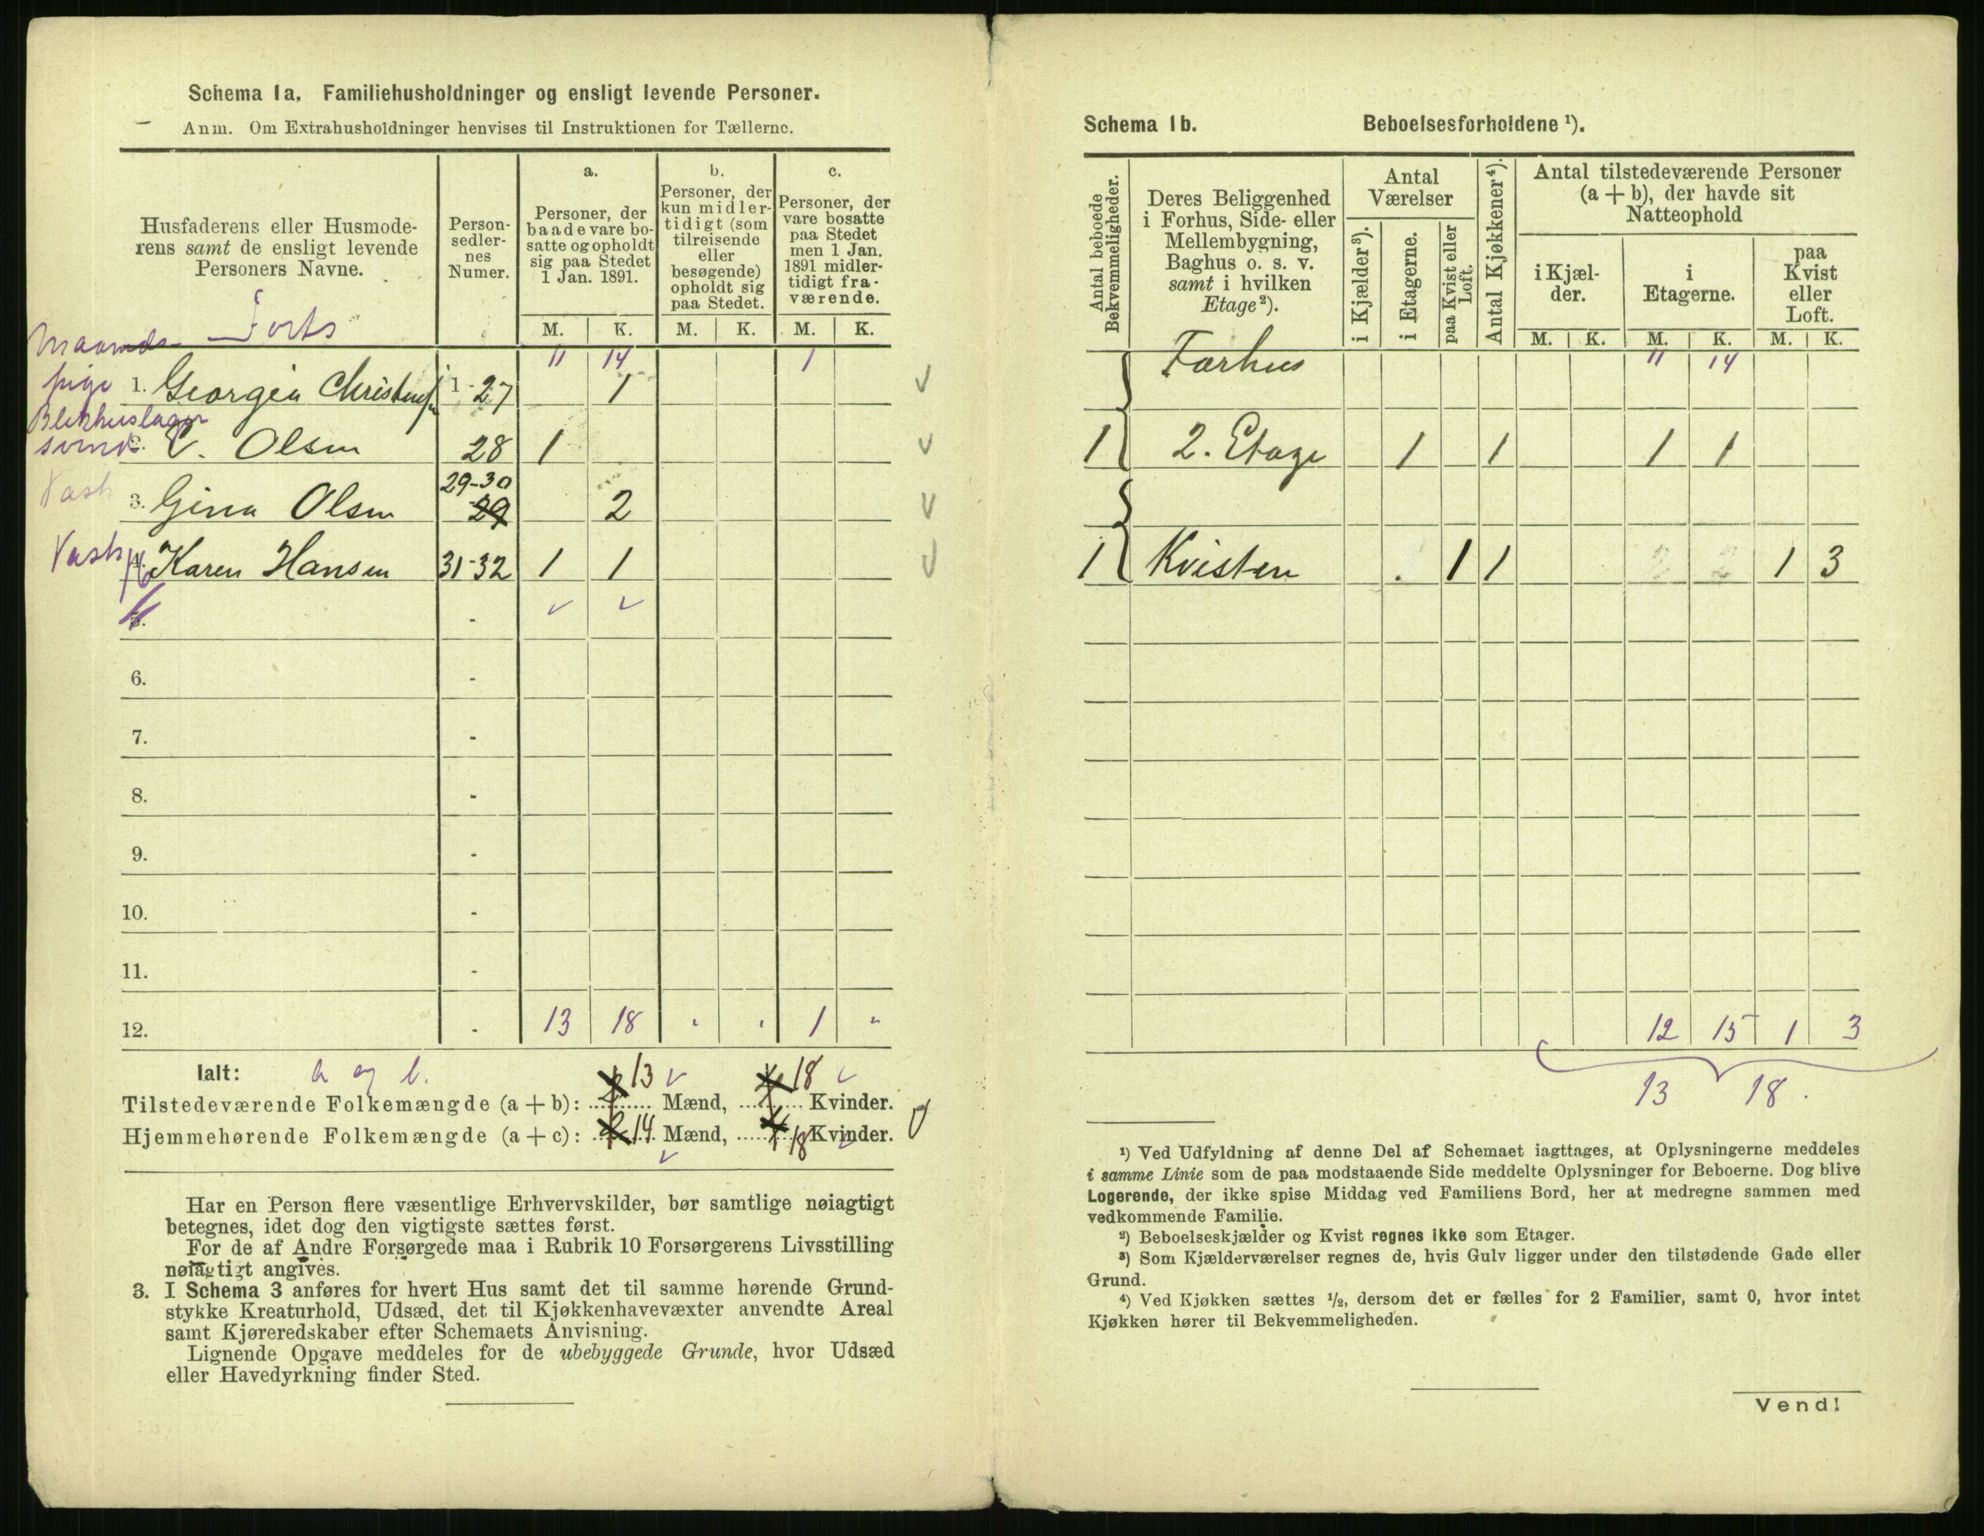 Schema 1a. Familiehusholdninger og ensligt levende Personer.
Anm. Om Extrahusholdninger henvises til Instruktionen for Tællerne.
Husfaderens eller Husmode-
rens samt de ensligt levende
Personers Navne.
Person-
sedler-
nes
Numer.
a.
Personer, der
baade vare bo-
satte og opholdt
sig paa Stedet
1 Jan. 1891.
b.
Personer, der
kun midler-
tidigt (som
tilreisende
eller
besøgende)
opholdt sig
paa Stedet.
c.
Personer, der
vare bosatte
paa Stedet
men 1 Jan.
1891 midler-
tidigt fra-
værende.
M. K. M. K. M. K.
Maaneds- Forts
11 14 1
pige 1. Georgia Christensen 1-27 1
Blikkenslager
svend 2. C. Olsen 28 1
29-30
Vask 3. Gina Olsen 29 2
Vask 4. Karen Hansen 31-32 1 1
5. -
6. -
7. -
8. -
9. -
10. -
11. -
12. - 13 18 1
Ialt: a og b.
13 18
Tilstedeværende Folkemængde (a + b): Mænd, Kvinder.
Hjemmehørende Folkemængde (a + c): 14 Mænd, 18 Kvinder.
Har en Person flere væsentlige Erhvervskilder, bør samtlige nøiagtigt
betegnes, idet dog den vigtigste sættes først.
For de af Andre Forsørgede maa i Rubrik 10 Forsørgerens Livsstilling
nøiagtigt angives.
3. I Schema 3 anføres for hvert Hus samt det til samme hørende Grund-
stykke Kreaturhold, Udsæd, det til Kjøkkenhavevæxter anvendte Areal
samt Kjøreredskaber efter Schemaets Anvisning.
Lignende Opgave meddeles for de ubebyggede Grunde, hvor Udsæd
eller Havedyrkning finder Sted.
Schema 1b. Beboelsesforholdene ¹).
Antal beboede
Bekvemmeligheder.
Deres Beliggenhed
i Forhus, Side- eller
Mellembygning,
Baghus o. s. v.
samt i hvilken
Etage²).
Antal
Værelser
i Kjælder³).
i Etagerne.
paa Kvist eller
Loft.
Antal Kjøkkener⁴).
Antal tilstedeværende Personer
(a + b), der havde sit
Natteophold
i Kjæl-
der.
i
Etagerne.
paa
Kvist
eller
Loft.
M. K. M. K. M. K.
Forhus 11 14
1 2. Etage 1 1 1 1
1 Kvisten 1 1 1 3
12 15 1 3
13 18.
¹) Ved Udfyldning af denne Del af Schemaet iagttages, at Oplysningerne meddeles
i samme Linie som de paa modstaaende Side meddelte Oplysninger for Beboerne. Dog blive
Logerende, der ikke spise Middag ved Familiens Bord, her at medregne sammen med
vedkommende Familie.
²) Beboelseskjælder og Kvist regnes ikke som Etager.
³) Som Kjælderværelser regnes de, hvis Gulv ligger under den tilstødende Gade eller
Grund.
⁴) Ved Kjøkken sættes ½, dersom det er fælles for 2 Familier, samt 0, hvor intet
Kjøkken hører til Bekvemmeligheden.
Vend!